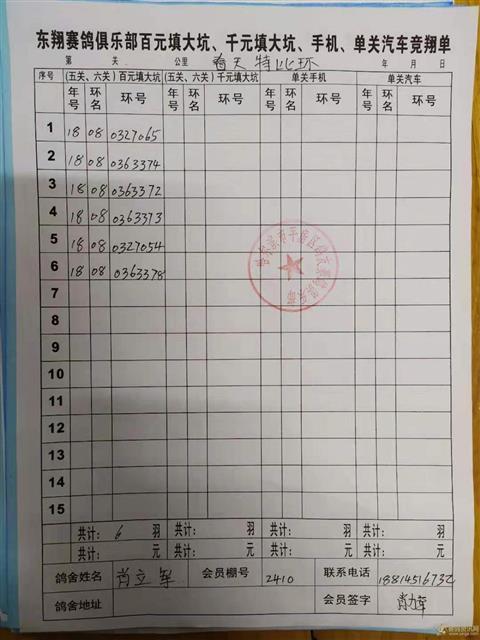 东翔赛鸽俱乐部百元填大坑、千元填大坑、手机、单关汽车竞翔单
第 关 公里 春天特比环 年 月 日
序号 (五关、六关)百元填大坑 (五关、六关)千元填大坑 单关手机 单关汽车
年号 环名 环号 年号 环名 环号 年号 环名 环号 年号 环名 环号
1 18 08 0327065
2 18 08 0363374
3 18 08 0363372
4 18 08 0363373
5 18 08 0327054
6 18 08 0363378
7
8
9
10
11
12
13
14
15
共计: 6 羽 共计: 羽 共计: 羽 共计: 羽
共计: 元 共计: 元 共计: 元 共计: 元
鸽舍姓名 肖立军 会员棚号 2410 联系电话 18814516732
鸽舍地址 会员签字 肖立军